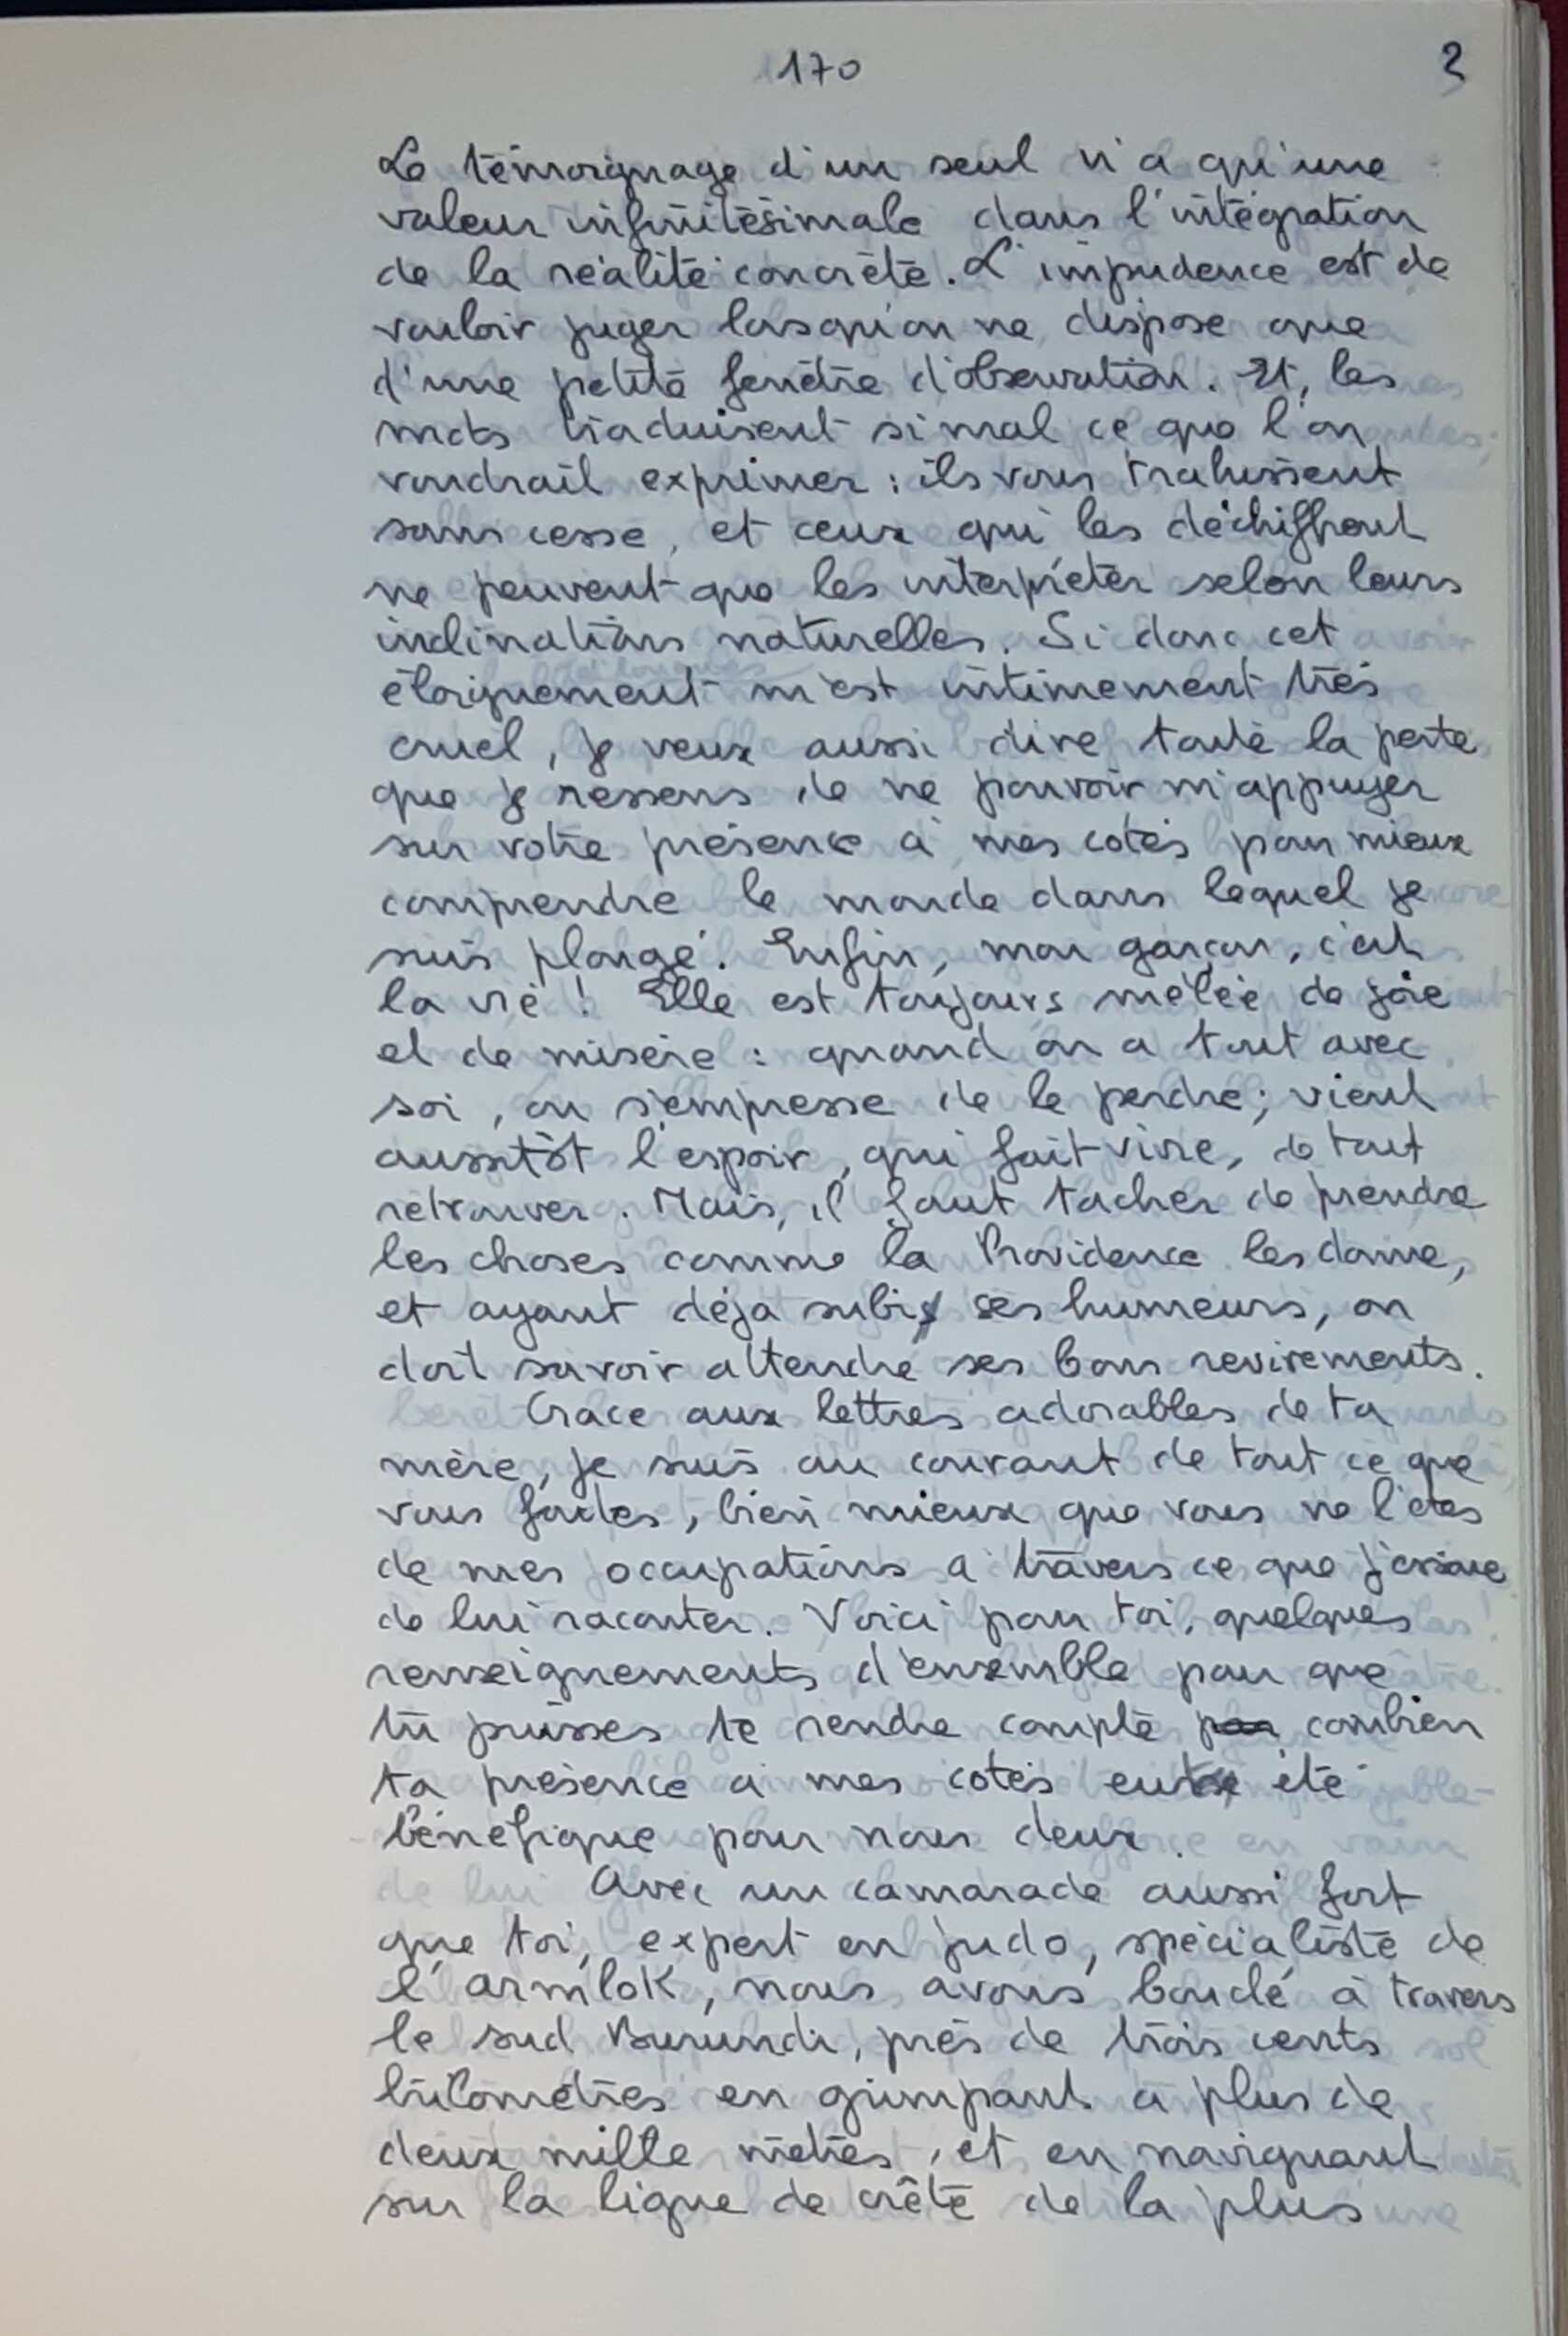 170
3
Le témoignage d'un seul n'a qu'une
valeur infinitésimale dans l'intégration
de la réalité concrète. L'impudence est de
vouloir juger lorsqu'on ne dispose que
d'une petite fenêtre d'observation. Et, les
mots traduisent si mal ce que l'on
voudrait exprimer : ils vous trahissent
sans cesse, et ceux qui les déchiffrent
ne peuvent que les interpréter selon leurs
inclinations naturelles. Si donc cet
éloignement m'est intimement très
cruel, je veux aussi dire toute la perte
que je ressens de ne pouvoir m'appuyer
sur votre présence à mes cotés pour mieux
comprendre le monde dans lequel je
suis plongé. Enfin, mon garçon, c'est
la vie ! Elle est toujours mêlée de joie
et de misère : quand on a tout avec
soi, on s'empresse de le perdre; vient
aussitôt l'espoir, qui fait vivre, de tout
retrouver. Mais, il faut tacher de prendre
les choses comme la Providence les donne,
et ayant déjà subi ses humeurs, on
doit savoir attendre ses bons revirements.
Grace aux lettres adorables de ta
mère, je suis au courant de tout ce que
vous faites, bien mieux que vous ne l'etes
de mes occupations à travers ce que j'essaie
de lui raconter. Voici pour toi, quelques
renseignements d'ensemble pour que
tu puisses te rendre compte combien
ta présence à mes cotés eut été
bénéfique pour nous deux.
Avec un camarade aussi fort
que toi, expert en judo, spécialiste de
l'armlok, nous avons bouclé à travers
le sud Burundi, près de trois cents
kilomètres en grimpant à plus de
deux mille mètres, et en naviguant
sur la ligne de crête de la plus